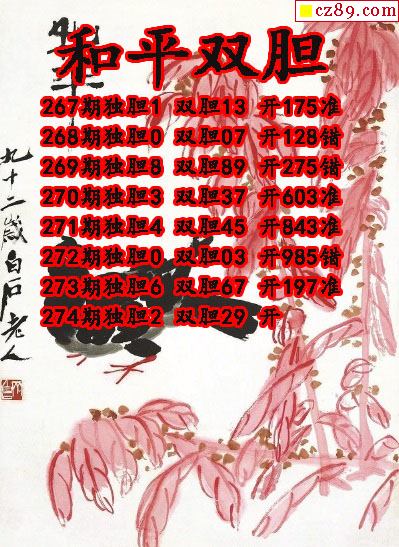 cz89.com
和平双胆
267期独胆1 双胆13 开175准
268期独胆0 双胆07 开128错
269期独胆8 双胆89 开275错
270期独胆3 双胆37 开603准
271期独胆4 双胆45 开843准
272期独胆0 双胆03 开985错
273期独胆6 双胆67 开197准
274期独胆2 双胆29 开
九十二岁白石老人